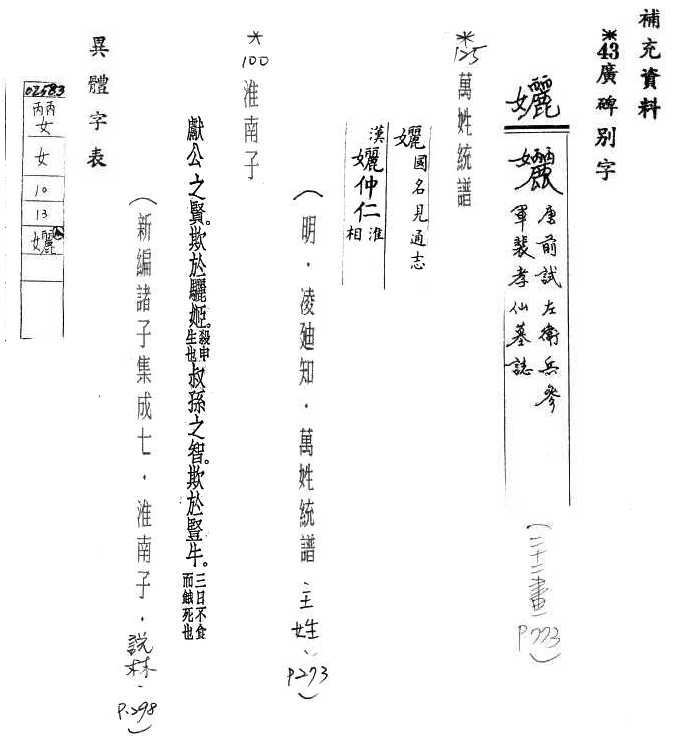 補充資料
*43廣碑別字
孋
孋 唐前試左衛兵參
軍裴孝仙墓誌
(二十二畫 P.773)
*125萬姓統譜
孋國名見通志
漢
孋仲仁 淮
相
(明．凌迪知．萬姓統譜 主姓、P.273)
*100淮南子
獻公之賢。欺於驪姬。殺申生也叔孫之智。欺於豎牛。三日不食而餓死也
(新編諸子集成七．淮南子．說林、P.298)
異體字表
02583
女
10
13
孋